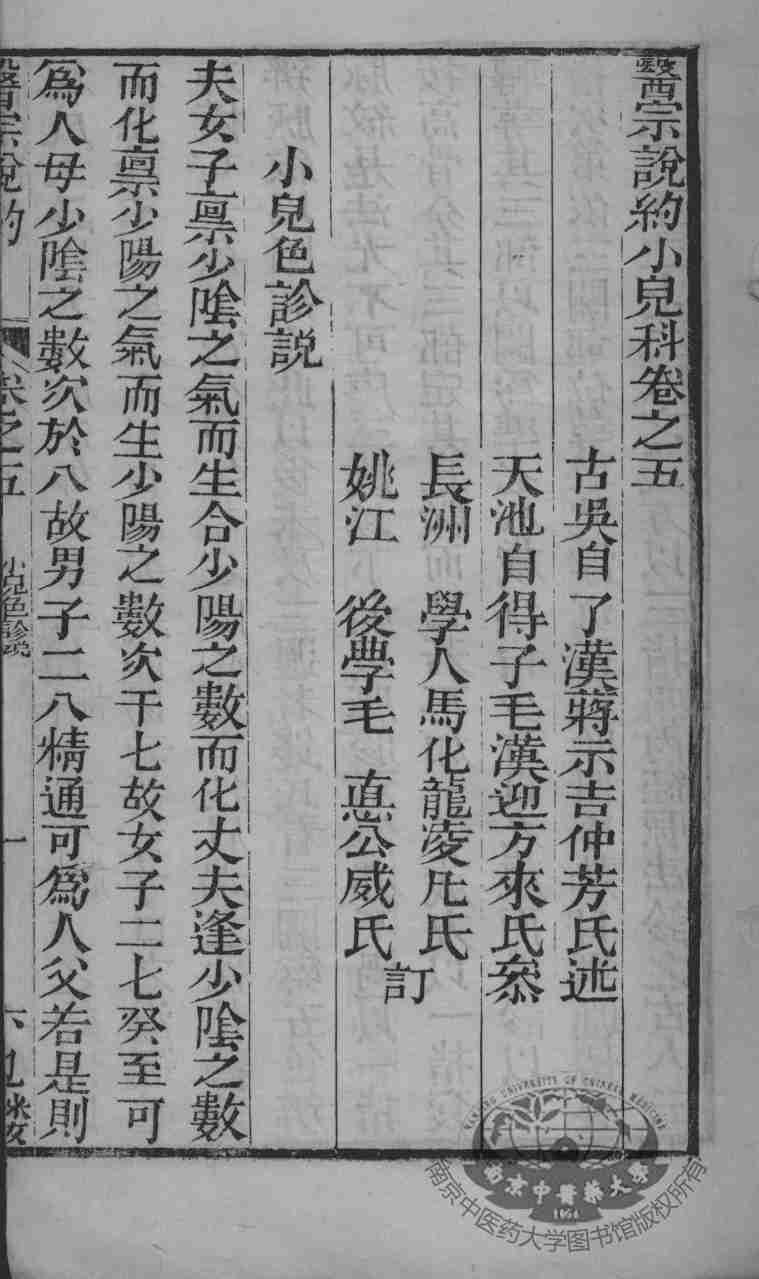 醫宗說約小兒科卷之五
古吳自了漢蔣示吉仲芳氏述
天池自得子毛漢迎方來氏叅
長洲 學人馬化龍凌 氏
姚江 後學毛 公威氏
訂
小兒色診說
夫女子禀少陰之氣而生合少陽之數而化丈夫逢少陰之數
而化禀少陽之氣而生少陽之數次于七故女子二七癸至可
爲人母少陰之數次於八故男子二八精通可爲人父若是則
醫宗說約
卷之五
小兒色診說
一
NANJING UNIVERSITY OF CHINESE MEDICINE
南京中醫藥大學
1954
南京中医药大学图书馆版权所有